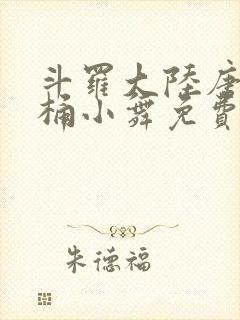 斗羅大陸唐
桶小舞免費
朱德福